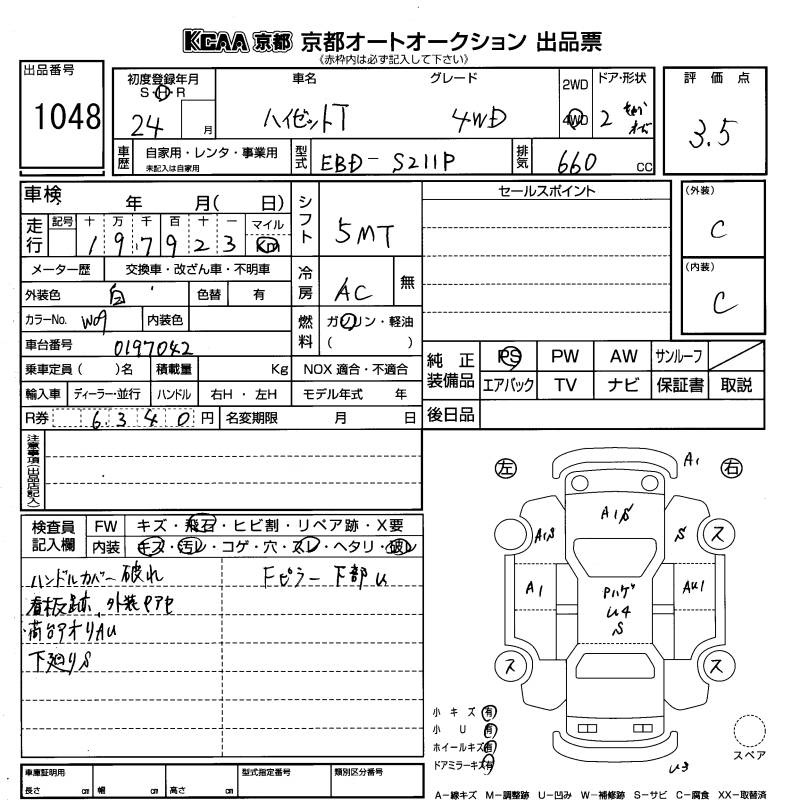 KCAA 京都 京都オートオークション 出品票
(赤枠内は必ず記入して下さい)
出品番号
1048
初度登録年月
S・H・R
24 月
車名
ハイゼットT
グレード
4WD
2WD
4WD
ドア・形状
2
評価点
3.5
車歴
自家用・レンタ・事業用
未記入は自家用
型式
EBD-S211P
排気
660 CC
車検 年 月( 日)
走行
記号 十 万 千 百 十 一 マイル
197923 Km
メーター歴 交換車・改ざん車・不明車
外装色 白 色替 有
カラーNo. W09 内装色
車台番号 0197042
乗車定員( )名 積載量 Kg
輸入車 ディーラー・並行 ハンドル 右H・左H
R券 6340 円 名変期限 月 日
シフト
5MT
冷房
AC 無
燃料
ガソリン・軽油
( )
NOX 適合・不適合
モデル年式 年
セールスポイント
(外装)
C
(内装)
C
純正装備品
PS PW AW サンルーフ
エアバック TV ナビ 保証書 取説
後日品
注意事項(出品店記入)
検査員記入欄
FW キズ・飛石・ヒビ割・リペア跡・X要
内装 キズ・汚レ・コゲ・穴・スレ・ヘタリ・破レ
ハンドルカバー破れ
看板跡、外装ヤアセ
荷台アオリAU
下廻りS
Fピラー下部U
左 右
A1
A1S
A1S
S
ス
A1
Pハゲ
U4
S
AU1
ス
ス
U3
小キズ 有
小U 有
ホイールキズ 有
ドアミラーキズ 有
スペア
車庫証明用
長さ cm 幅 cm 高さ cm
型式指定番号
類別区分番号
A-線キズ M-調整跡 U-凹み W-補修跡 S-サビ C-腐食 XX-取替済